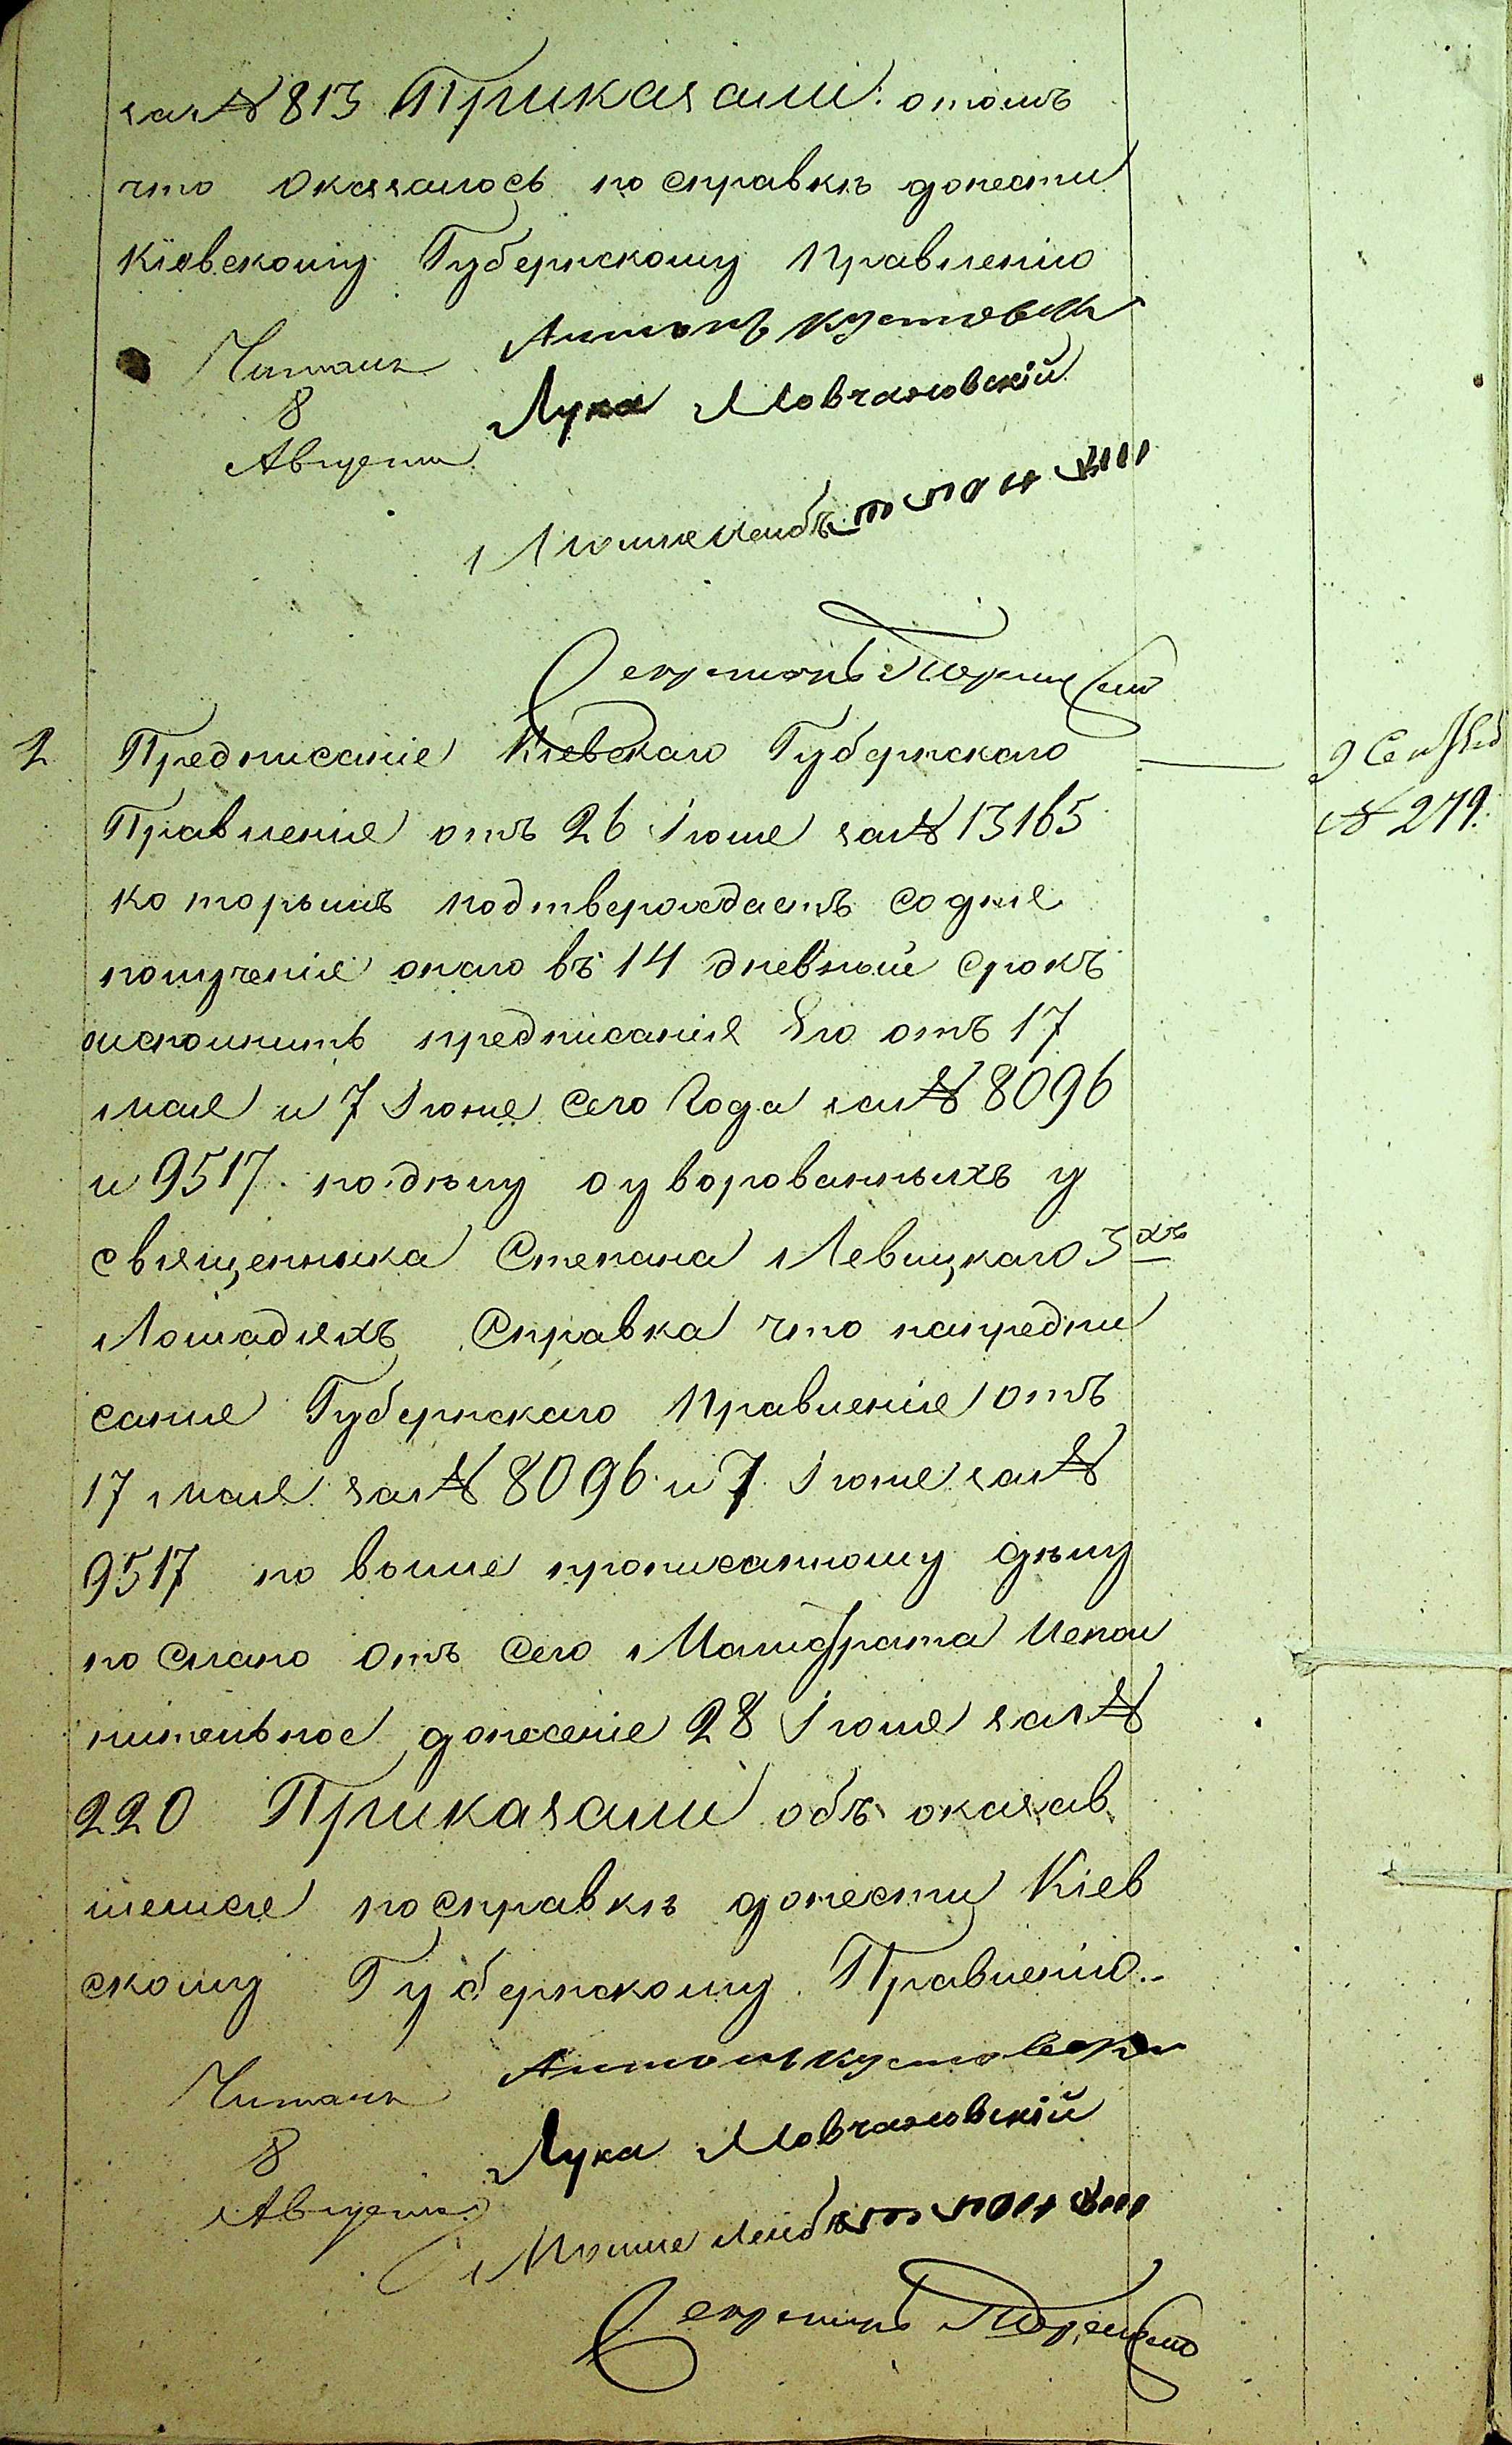 за № 813 Приказали: отомъ
что оказалось по справкѣ донести
Кіевскому Губернскому Правленію
Антонъ
Читалъ
Лука Мовчановскій
8
Августа
Мошко Лейбъ
Секретарь
2 Предписаніе Кіевскаго Губернскаго
9 Сентября
Правленія отъ 26 Іюля за № 13165
№ 279.
которымъ подтверождаетъ со дня
полученія онаго въ 14 дневный срокъ
исполнить предписанія Его отъ 17
мая и 7 Іюня сего Года за № 8096
и 9517. по дѣлу о уворованныхъ у
священника Степана Левицкаго 3хъ
Лошадяхъ Справка что напредпи
санія Губернскаго Правленія отъ
17 мая за № 8096 и 7 Іюня за №
9517 по выше прописанному дѣлу
послано отъ сего Магистрата Испол
нительное донесеніе 28 Іюля за №
220 Приказали объ оказав
шемся по справкѣ донести Кіев
скому Губернскому Правленію.
Антонъ
Читалъ
Лука Мовчановскій
8
Августа
Мошко Лейбъ
Секретарь